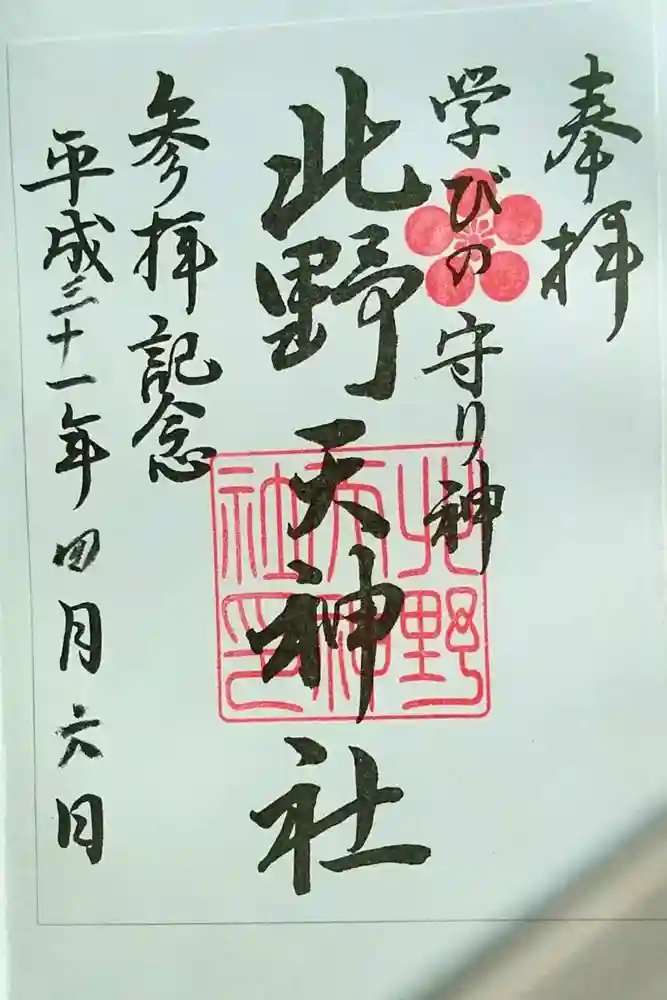 奉拝
学びの守り神
北野天神社
北野天神社印
参拝記念
平成三十一年四月六日